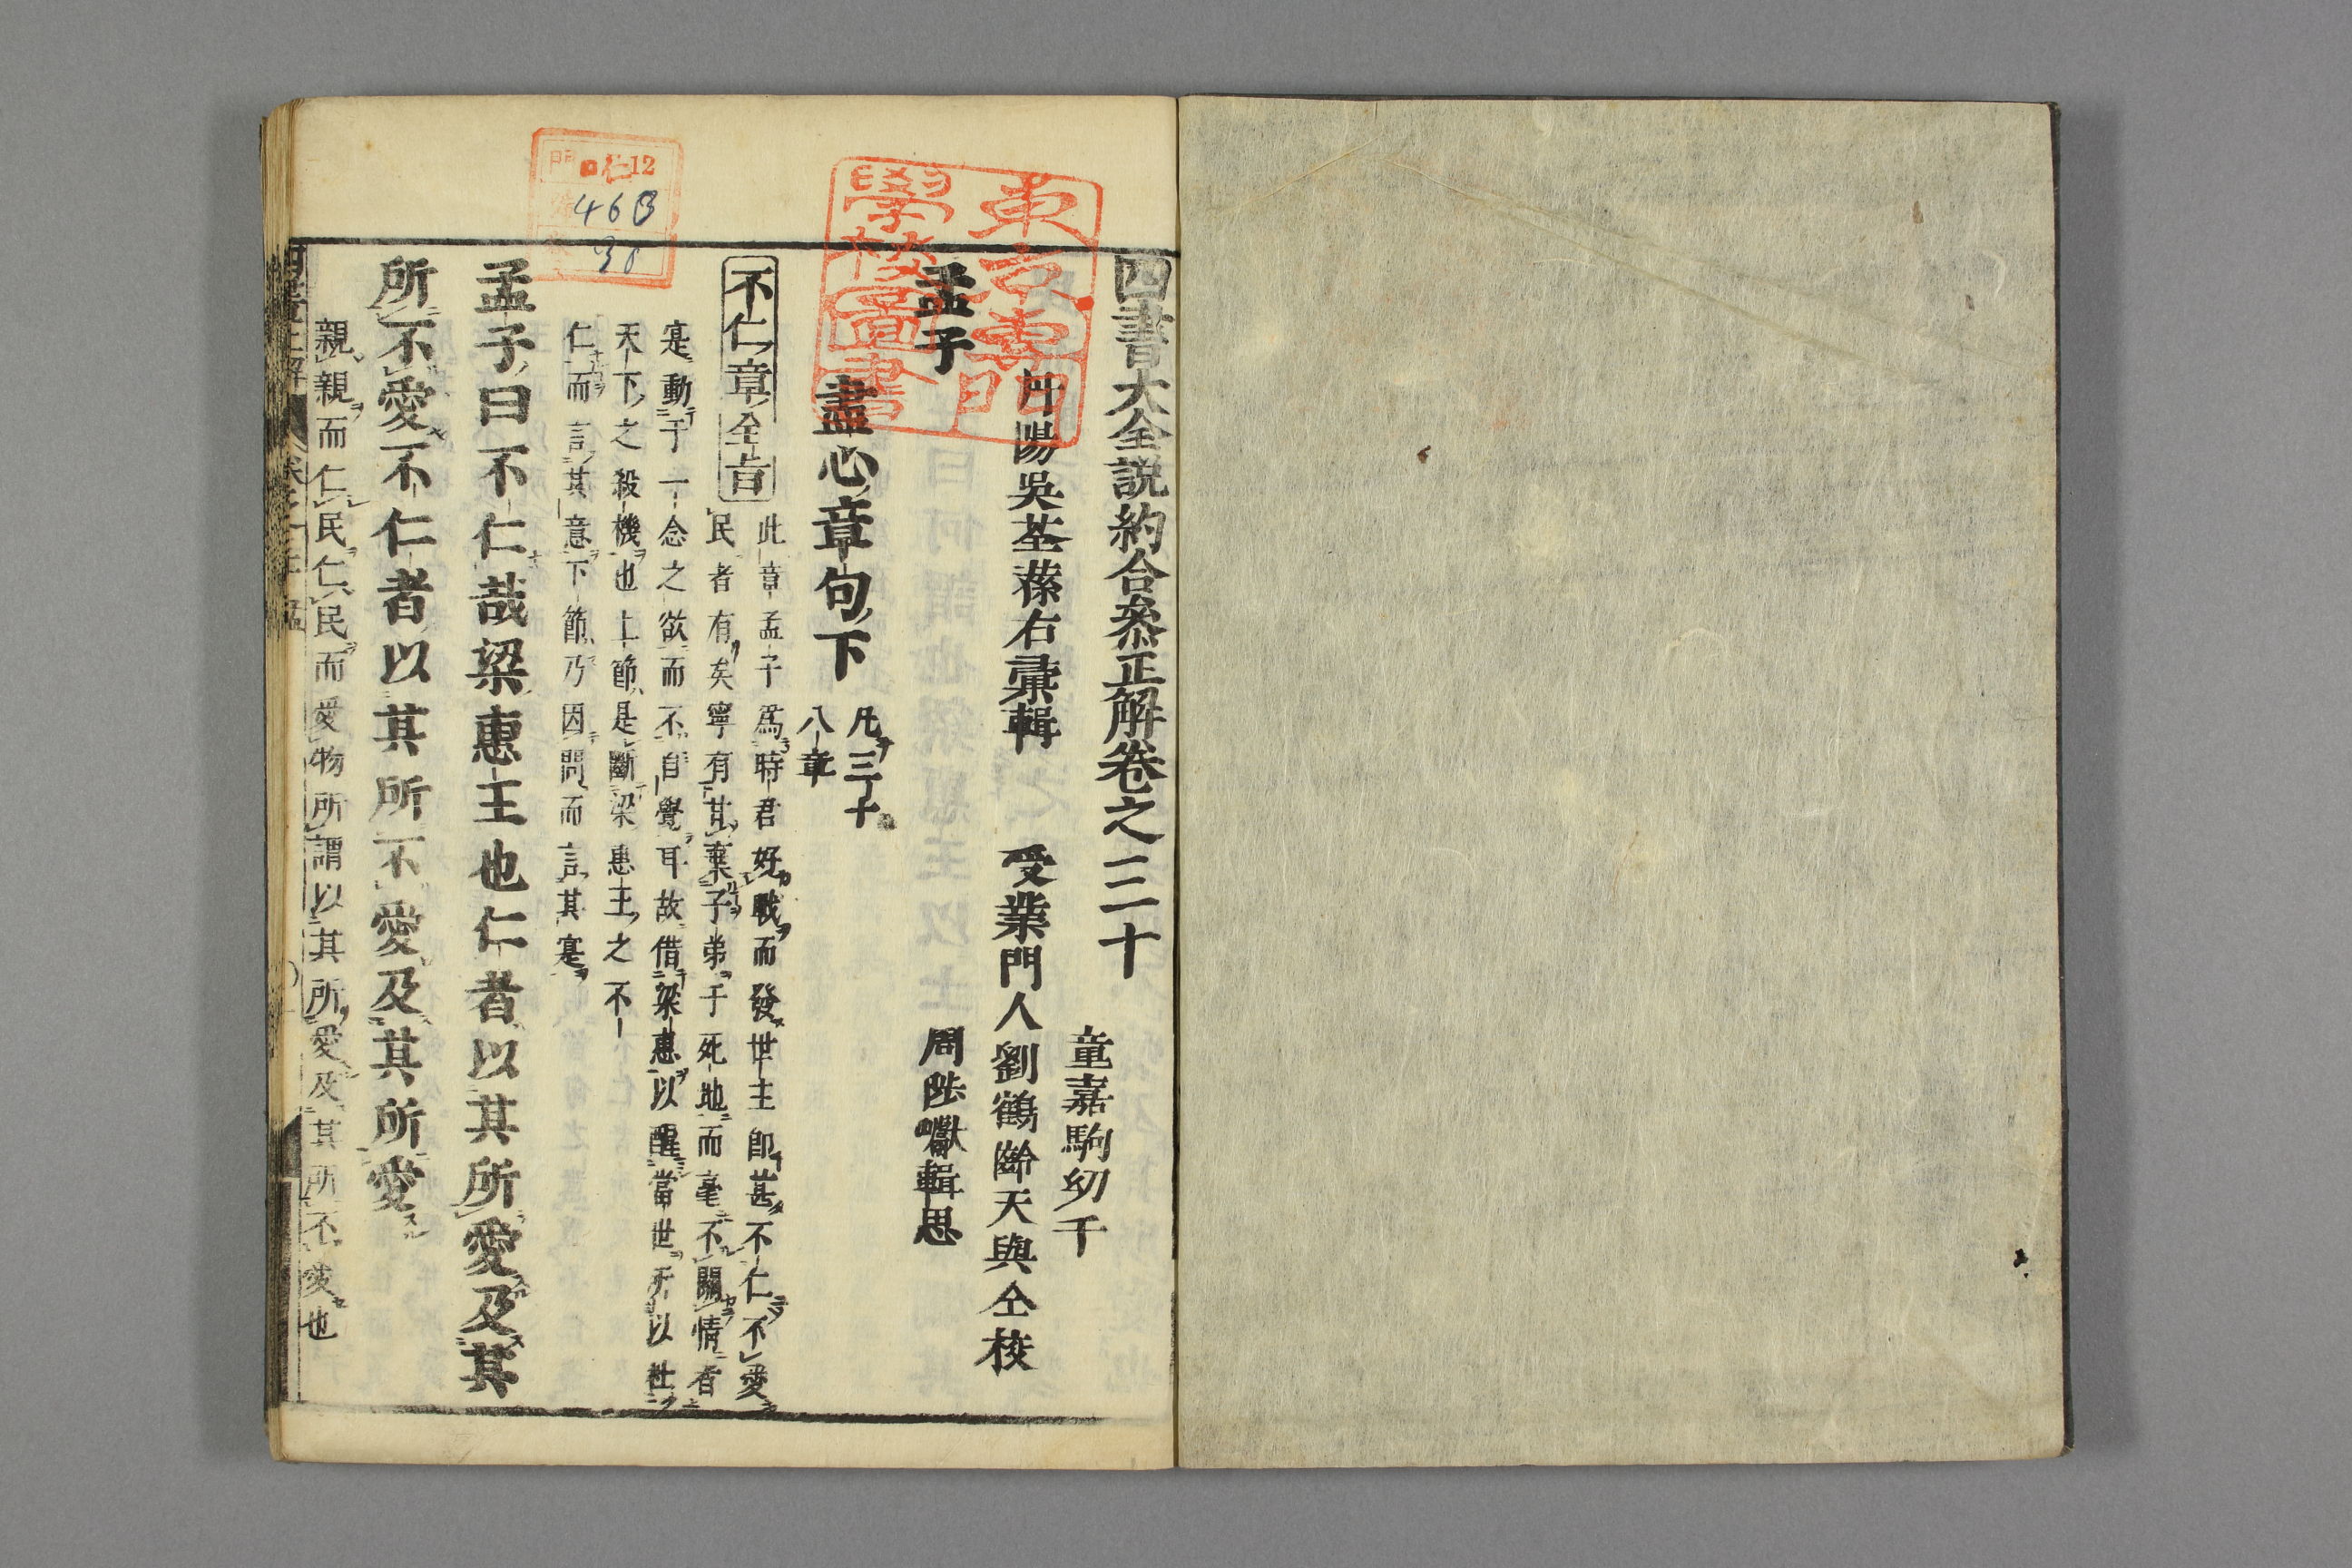 四書大全説約合參正解卷之三十
丹陽吳荃蓀右彙輯
童嘉駒幼千
受業門人劉鶴齡天與仝校
周陛嶽輯思
孟子
盡心章句下
凡三十
八章
不仁章全旨
此章孟子爲時君好戰而發世主卽甚不仁不愛
民者有矣寧有其棄子弟于死地而毫不關情者
寔動于一念之欲而不自覺耳故借梁惠以醒當世所以杜
天下之殺機也上節是斷梁惠王之不
仁而言其意下節乃因問而言其寔
孟子曰不仁哉梁惠王也仁者以其所愛及其
所不愛不仁者以其所不愛及其所愛
親親而仁民仁民而愛物所謂以其所愛及其所不愛也
東京專門
學校圖書
門
12
46B
30